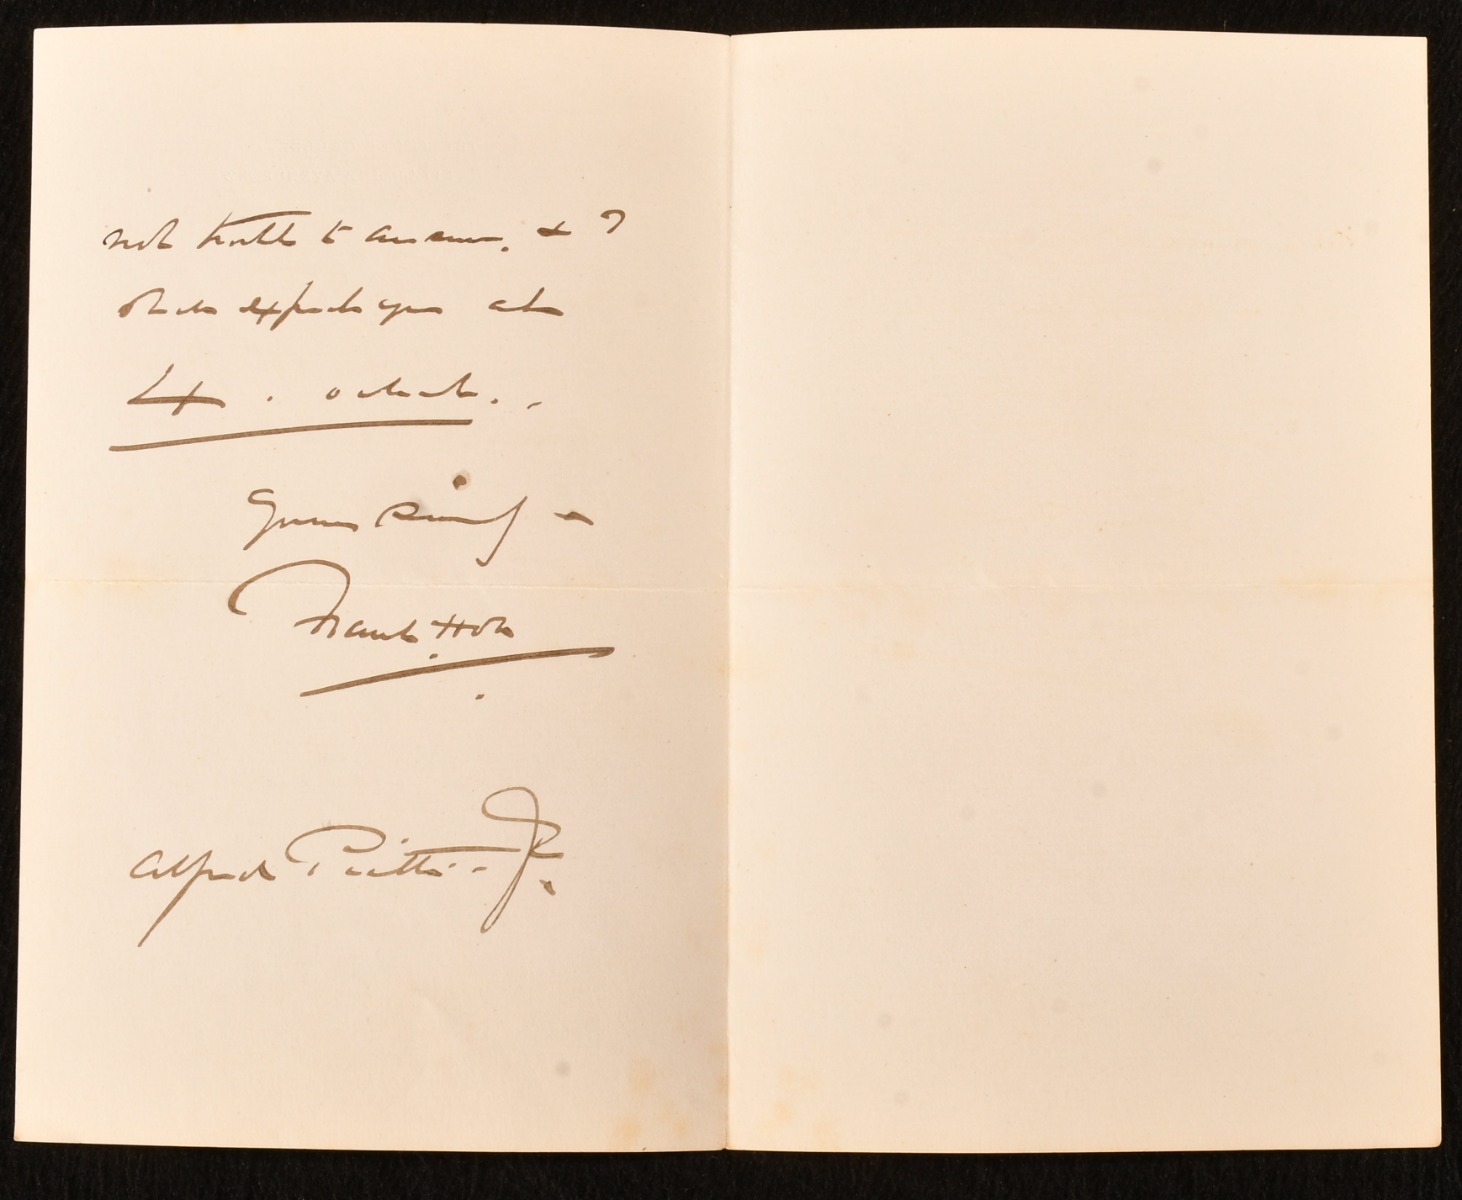 not trouble to answer. & I
shall expect you at
4. oclock..
Yours sincerely -
Frank Holl
Alfred Piatti